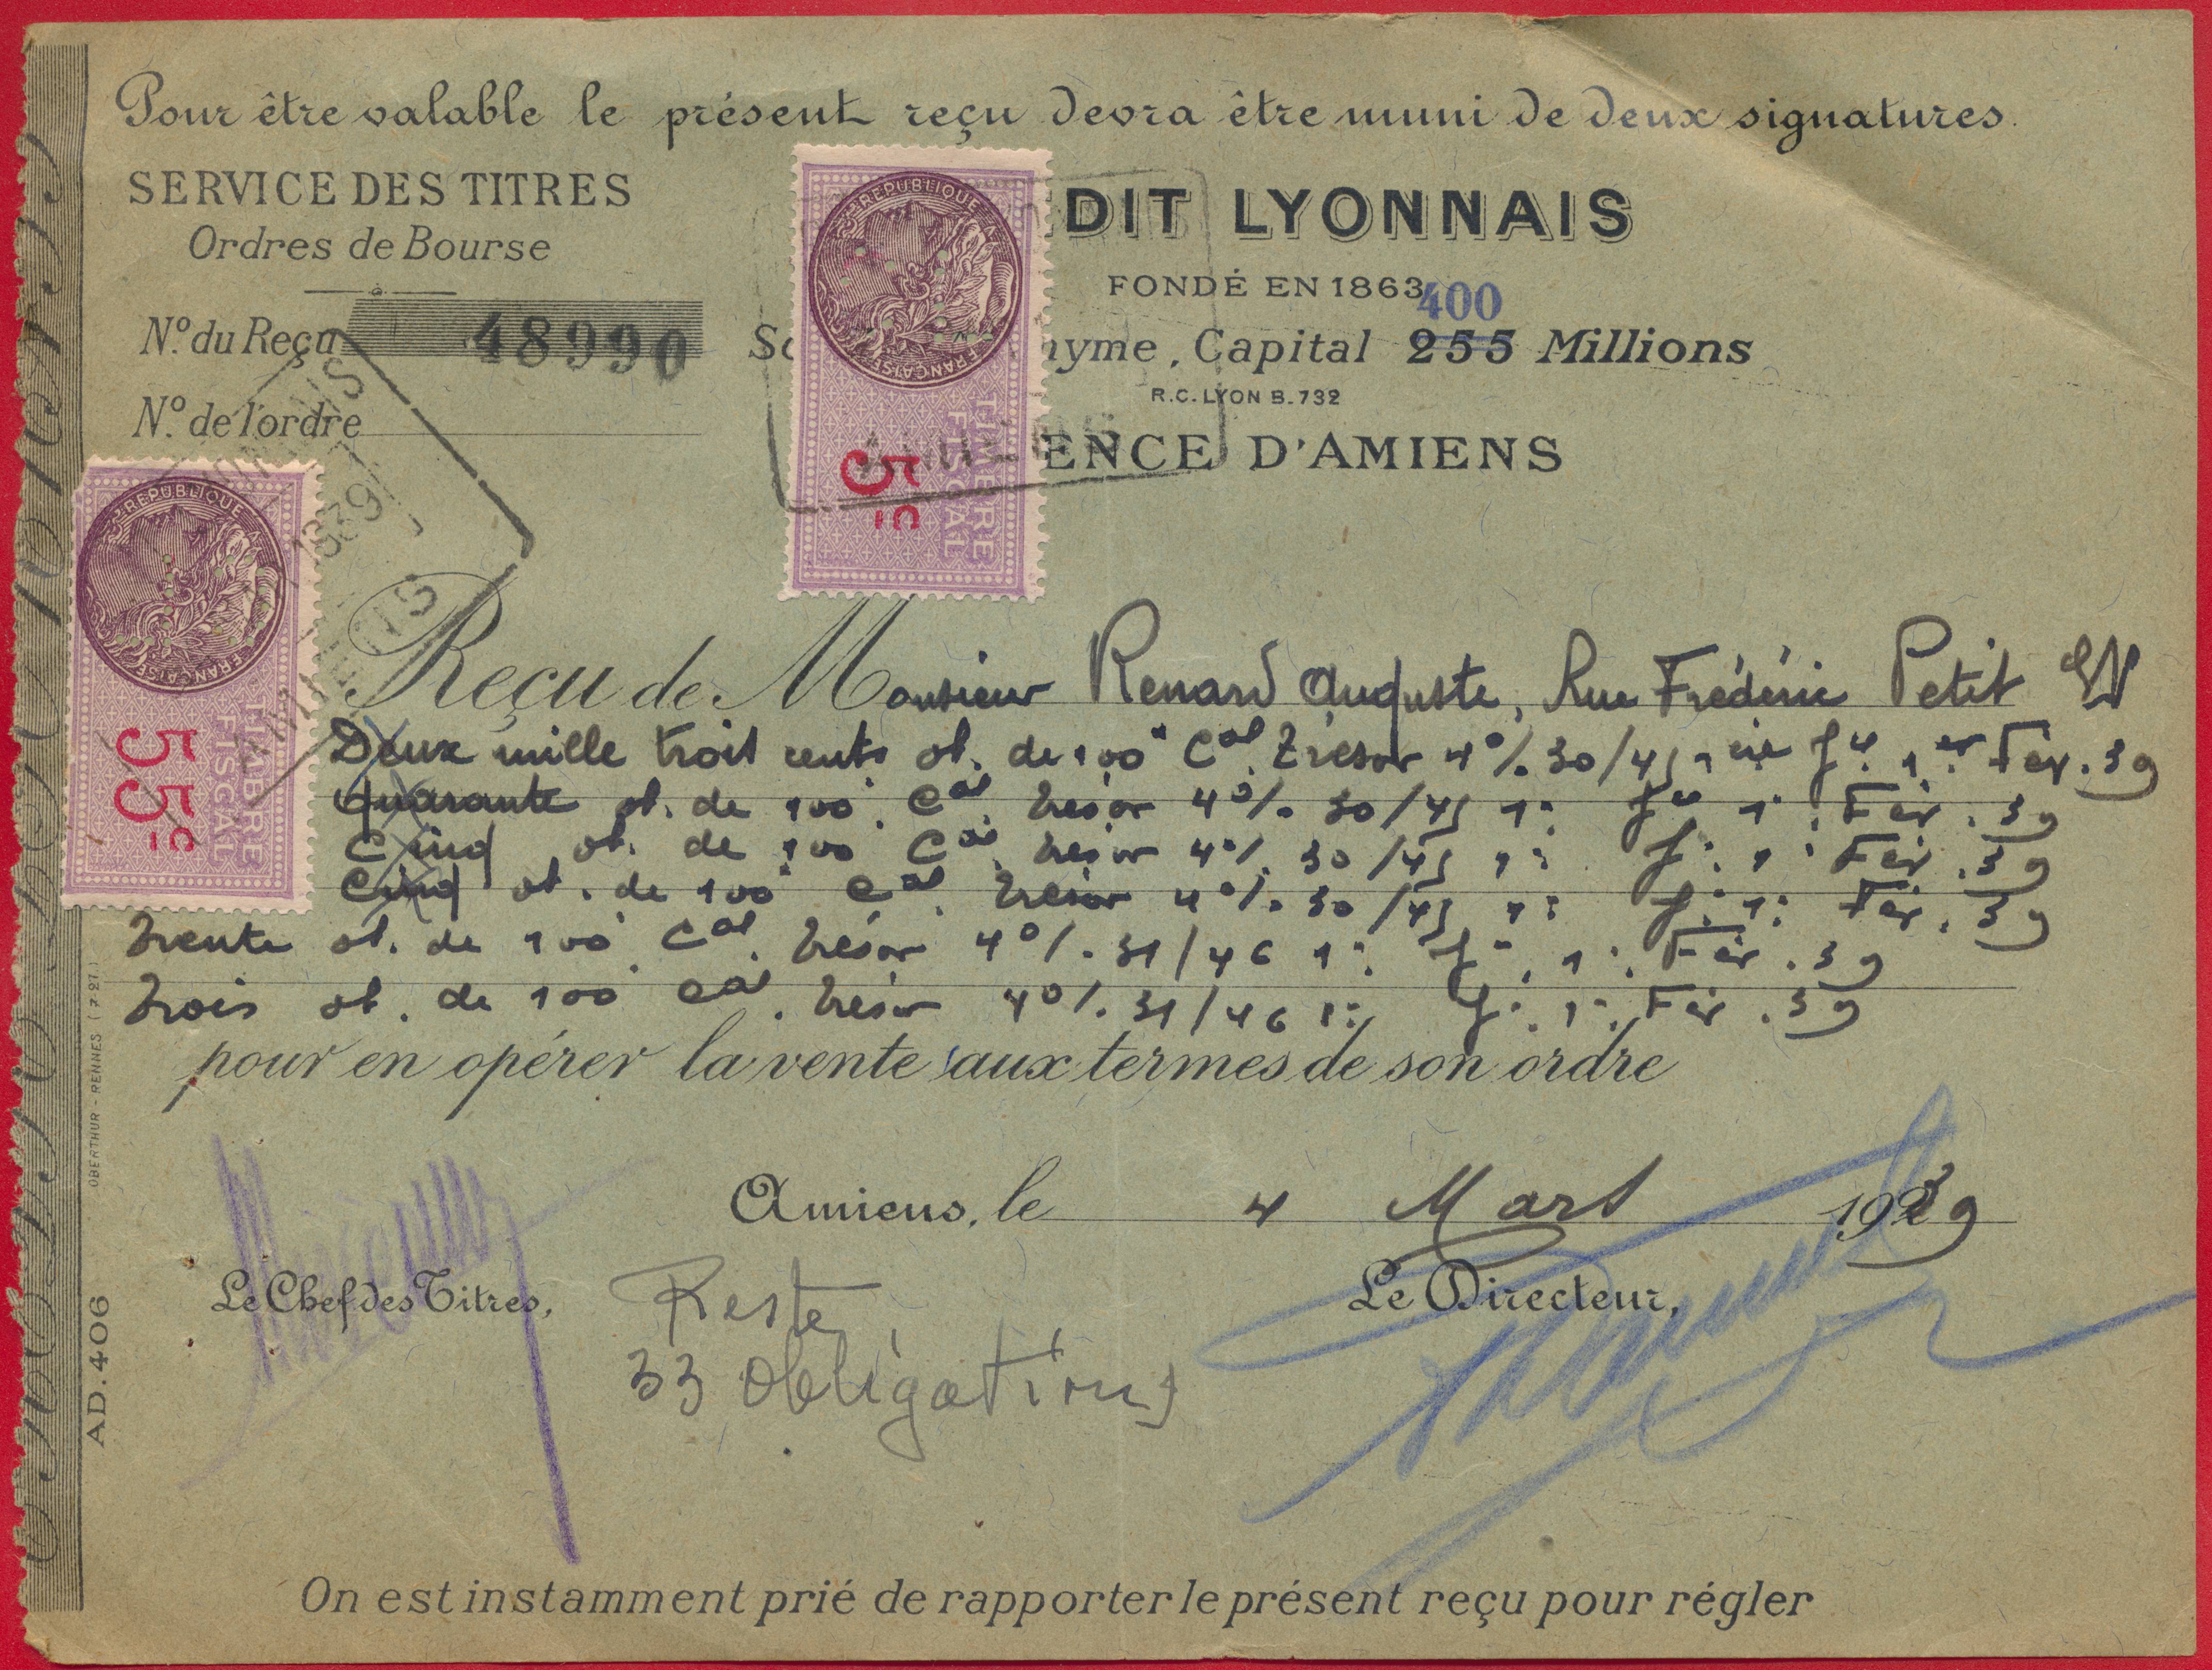 Pour être valable le présent reçu devra être muni de deux signatures.
SERVICE DES TITRES
Ordres de Bourse
N° du Reçu 48990
N° de l'ordre
DIT LYONNAIS
FONDÉ EN 1863
400
yme, Capital 255 Millions
R.C. LYON B. 732
ENCE D'AMIENS
REPUBLIQUE FRANÇAISE
TIMBRE FISCAL
5c
REPUBLIQUE FRANÇAISE
TIMBRE FISCAL
55c
AMIENS
1939
Reçu de Monsieur Renard Auguste, Rue Frédéric Petit EV
Deux mille trois cents ob. de 100 Cal Trésor 4% 30/45 1 Jce 1er Fév. 39
Quarante ob. de 100 Cal Trésor 4% 30/45 1" Jce 1" Fév. 39
Cinq ob. de 100 Cal Trésor 4% 30/45 1" J" 1" Fév. 39
Cinq ob. de 100 Cal Trésor 4% 30/45 1" J" 1" Fév. 39
Trente ob. de 100 Cal Trésor 4% 31/46 1" J" 1" Fév. 39
Trois ob. de 100 Cal Trésor 4% 31/46 1" J" 1" Fév. 39
pour en opérer la vente aux termes de son ordre
Amiens, le 4 Mars 1939
Le Chef des Titres,
Le Directeur,
Reste
33 obligations
On est instamment prié de rapporter le présent reçu pour régler
OBERTHUR - RENNES (7-27)
AD. 406